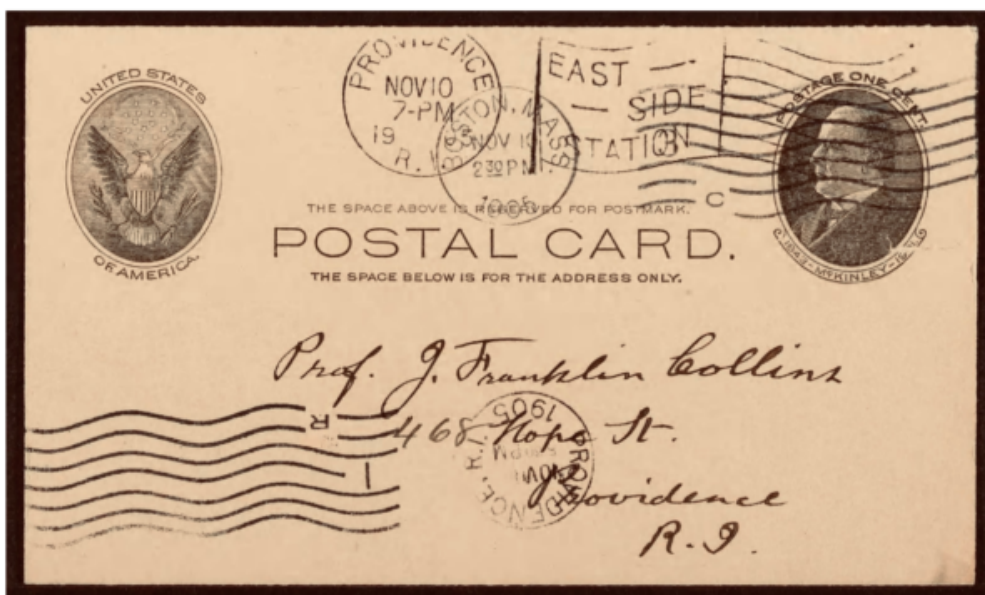 UNITED STATES
OF AMERICA.
PROVIDENCE
NOV 10
7-PM
19
R.I.
BOSTON, MASS.
NOV 10
2 30 PM
1905
EAST
SIDE
STATION
C
POSTAGE ONE CENT.
1843-McKINLEY-
THE SPACE ABOVE IS RESERVED FOR POSTMARK.
POSTAL CARD.
THE SPACE BELOW IS FOR THE ADDRESS ONLY.
Prof. J. Franklin Collins
468 Hope St.
Providence
R.I.
PROVIDENCE, R.I.
NOV
PM
1905
R
I